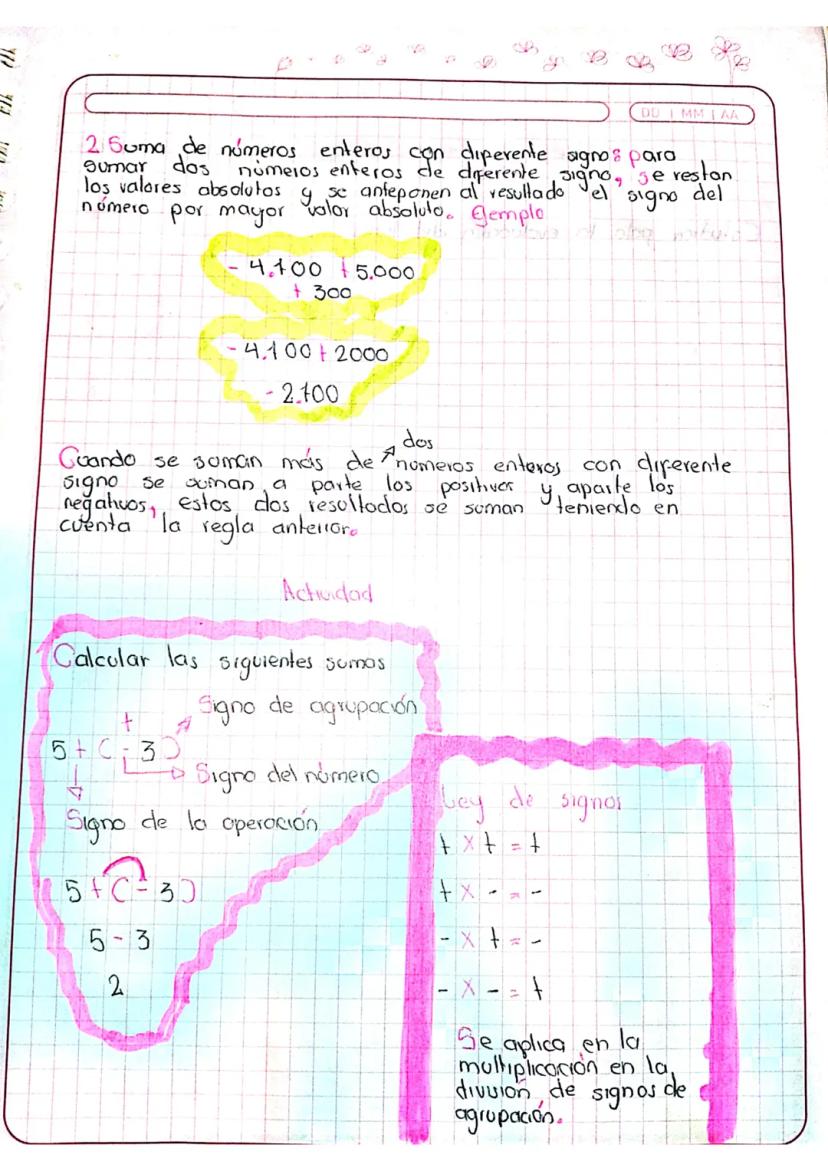 DD | MM | AA
2 Suma de números enteros con diferente signo: para
sumar dos números enteros de diferente signo, se restan
los valores absolutos y se anteponen al resultado el signo del
número por mayor valor absoluto. Ejemplo
- 4.700 + 5.000
+ 300
- 4.100 + 2000
- 2.100
dos
Cuando se suman más de números enteros con diferente
signo se suman a parte los positivos y aparte los
negativos, estos dos resultados se suman teniendo en
cuenta la regla anterior.
Actividad
Calcular las siguientes sumas
Signo de agrupación
+
5 + (- 3)
Signo del número
Signo de la operación
5 + (- 3)
5 - 3
2
Ley de signos
+ x + = +
+ x - = -
- x + = -
- x - = +
Se aplica en la
multiplicación en la
división de signos de
agrupación.